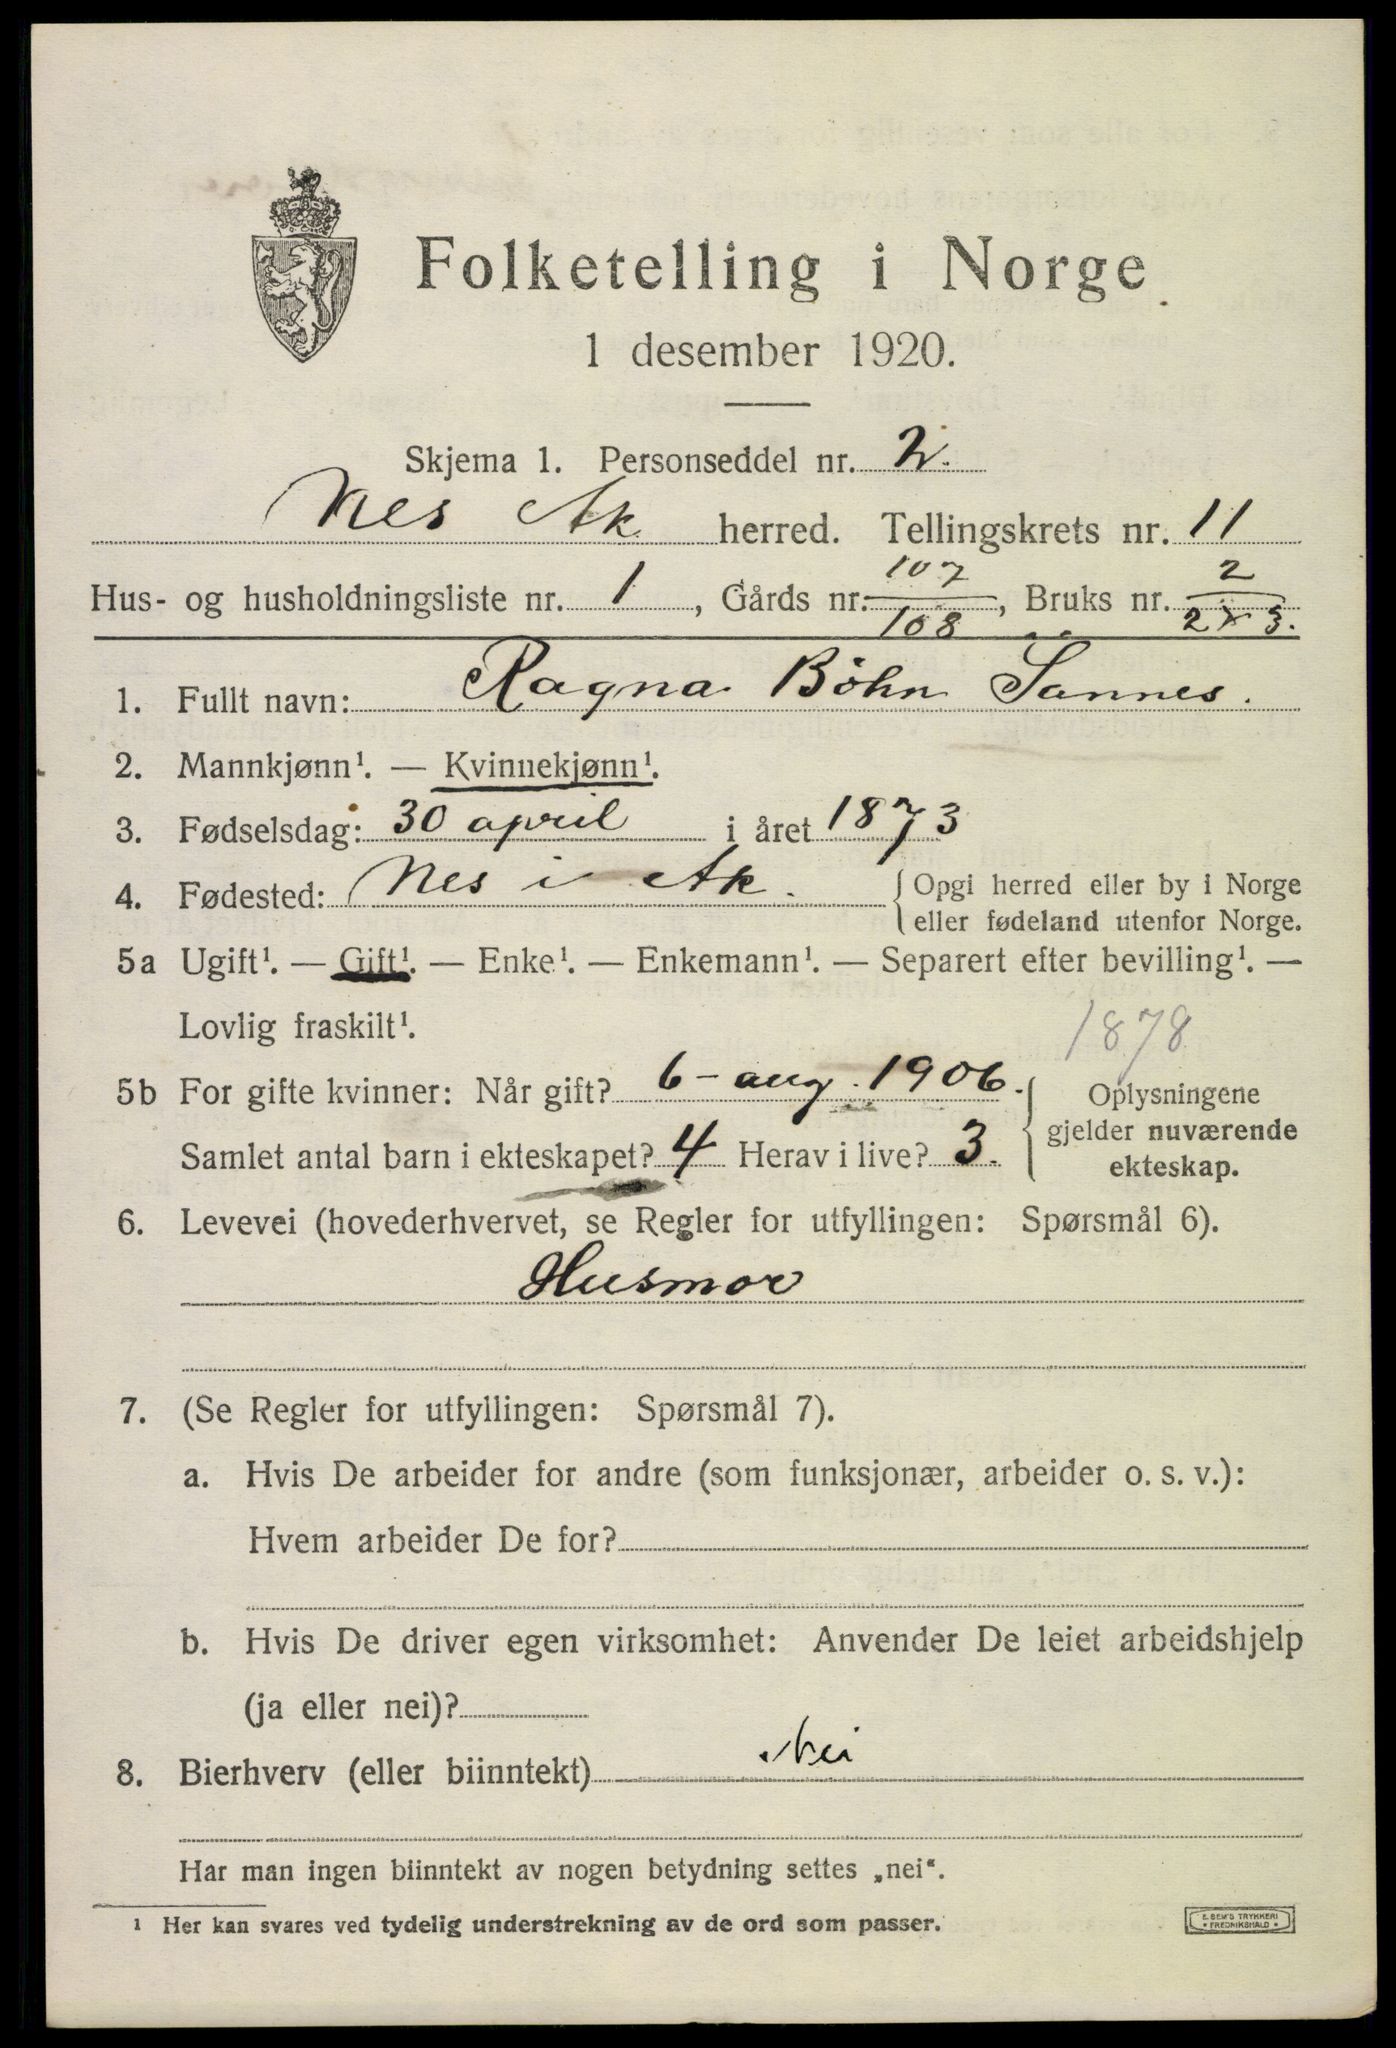 Folketelling i Norge
1 desember 1920.
Skjema 1. Personseddel nr. 2.
Nes Ak. herred. Tellingskrets nr. 11
Hus- og husholdningsliste nr. 1, Gårds nr. 107/108, Bruks nr. 2/2 x 3.
1. Fullt navn: Ragna Böhn Sannes.
2. Mannkjønn¹. — Kvinnekjønn¹.
3. Fødselsdag: 30 april i året 1873
4. Fødested: Nes i Ak. { Opgi herred eller by i Norge
eller fødeland utenfor Norge.
5a Ugift¹. — Gift¹. — Enke¹. — Enkemann¹. — Separert efter bevilling¹. —
Lovlig fraskilt¹.
1878
5b For gifte kvinner: Når gift? 6 - aug. 1906. { Oplysningene
gjelder nuværende
Samlet antal barn i ekteskapet? 4 Herav i live? 3.
ekteskap.
6. Levevei (hovederhvervet, se Regler for utfyllingen: Spørsmål 6).
Husmor
7. (Se Regler for utfyllingen: Spørsmål 7).
a. Hvis De arbeider for andre (som funksjonær, arbeider o. s. v.):
Hvem arbeider De for?
b. Hvis De driver egen virksomhet: Anvender De leiet arbeidshjelp
(ja eller nei)?
8. Bierhverv (eller biinntekt) Nei
Har man ingen biinntekt av nogen betydning settes „nei“.
¹ Her kan svares ved tydelig understrekning av de ord som passer.
E. SEM'S TRYKKERI
* FREDRIKSHALD *